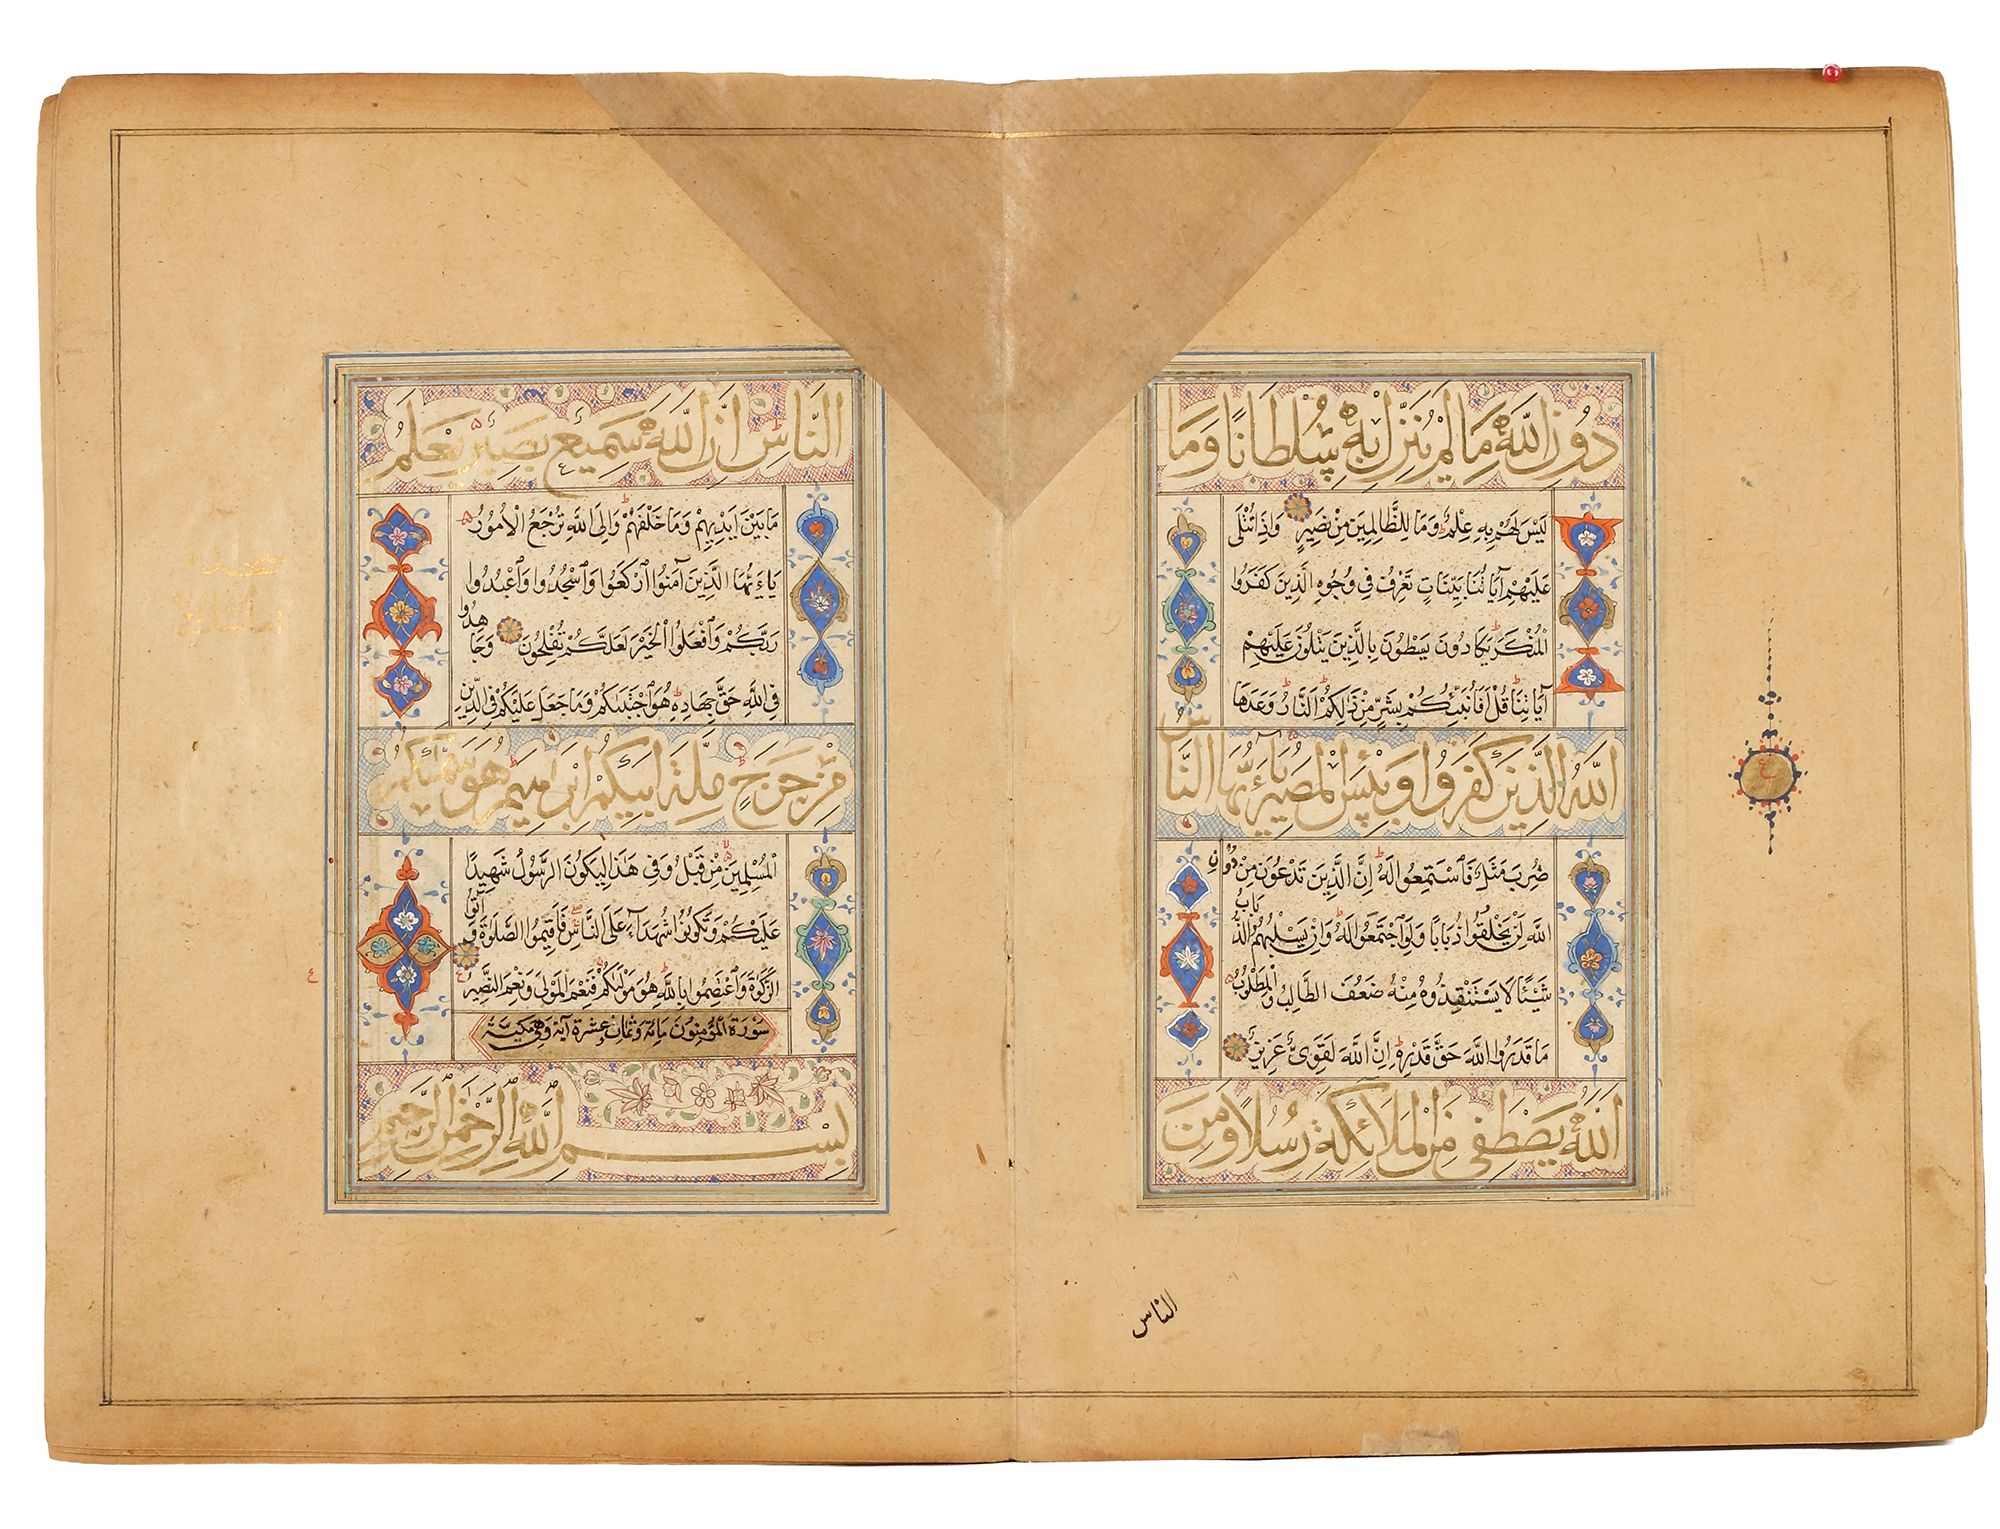 دُونِ اللَّهِ مَا لَمْ يُنَزِّلْ بِهِ سُلْطَانًا وَمَا
لَيْسَ لَهُمْ بِهِ عِلْمٌ وَمَا لِلظَّالِمِينَ مِنْ نَصِيرٍ وَإِذَا تُتْلَى
عَلَيْهِمْ آيَاتُنَا بَيِّنَاتٍ تَعْرِفُ فِي وُجُوهِ الَّذِينَ كَفَرُوا
الْمُنْكَرَ يَكَادُونَ يَسْطُونَ بِالَّذِينَ يَتْلُونَ عَلَيْهِمْ
آيَاتِنَا قُلْ أَفَأُنَبِّئُكُمْ بِشَرٍّ مِنْ ذَلِكُمُ النَّارُ وَعَدَهَا
اللَّهُ الَّذِينَ كَفَرُوا وَبِئْسَ الْمَصِيرُ يَاءَيُّهَا النَّاسُ
ضُرِبَ مَثَلٌ فَاسْتَمِعُوا لَهُ إِنَّ الَّذِينَ تَدْعُونَ مِنْ دُونِ
اللَّهِ لَنْ يَخْلُقُوا ذُبَابًا وَلَوِ اجْتَمَعُوا لَهُ وَإِنْ يَسْلُبْهُمُ الذُّبَابُ
شَيْئًا لَا يَسْتَنْقِذُوهُ مِنْهُ ضَعُفَ الطَّالِبُ وَالْمَطْلُوبُ
مَا قَدَرُوا اللَّهَ حَقَّ قَدْرِهِ إِنَّ اللَّهَ لَقَوِيٌّ عَزِيزٌ
اللَّهُ يَصْطَفِي مِنَ الْمَلَائِكَةِ رُسُلًا وَمِنَ
الناس
النَّاسِ إِنَّ اللَّهَ سَمِيعٌ بَصِيرٌ يَعْلَمُ
مَا بَيْنَ أَيْدِيهِمْ وَمَا خَلْفَهُمْ وَإِلَى اللَّهِ تُرْجَعُ الْأُمُورُ
يَاءَيُّهَا الَّذِينَ آمَنُوا ارْكَعُوا وَاسْجُدُوا وَاعْبُدُوا
رَبَّكُمْ وَافْعَلُوا الْخَيْرَ لَعَلَّكُمْ تُفْلِحُونَ وَجَاهِدُوا
فِي اللَّهِ حَقَّ جِهَادِهِ هُوَ اجْتَبَاكُمْ وَمَا جَعَلَ عَلَيْكُمْ فِي الدِّينِ
مِنْ حَرَجٍ مِلَّةَ أَبِيكُمْ إِبْرَاهِيمَ هُوَ سَمَّاكُمُ
الْمُسْلِمِينَ مِنْ قَبْلُ وَفِي هَذَا لِيَكُونَ الرَّسُولُ شَهِيدًا
عَلَيْكُمْ وَتَكُونُوا شُهَدَاءَ عَلَى النَّاسِ فَأَقِيمُوا الصَّلَوةَ وَآتُوا
الزَّكَوةَ وَاعْتَصِمُوا بِاللَّهِ هُوَ مَوْلَاكُمْ فَنِعْمَ الْمَوْلَى وَنِعْمَ النَّصِيرُ
سورة المؤمنون مائة وثمان عشرة آية وهي مكية
بِسْمِ اللَّهِ الرَّحْمَنِ الرَّحِيمِ